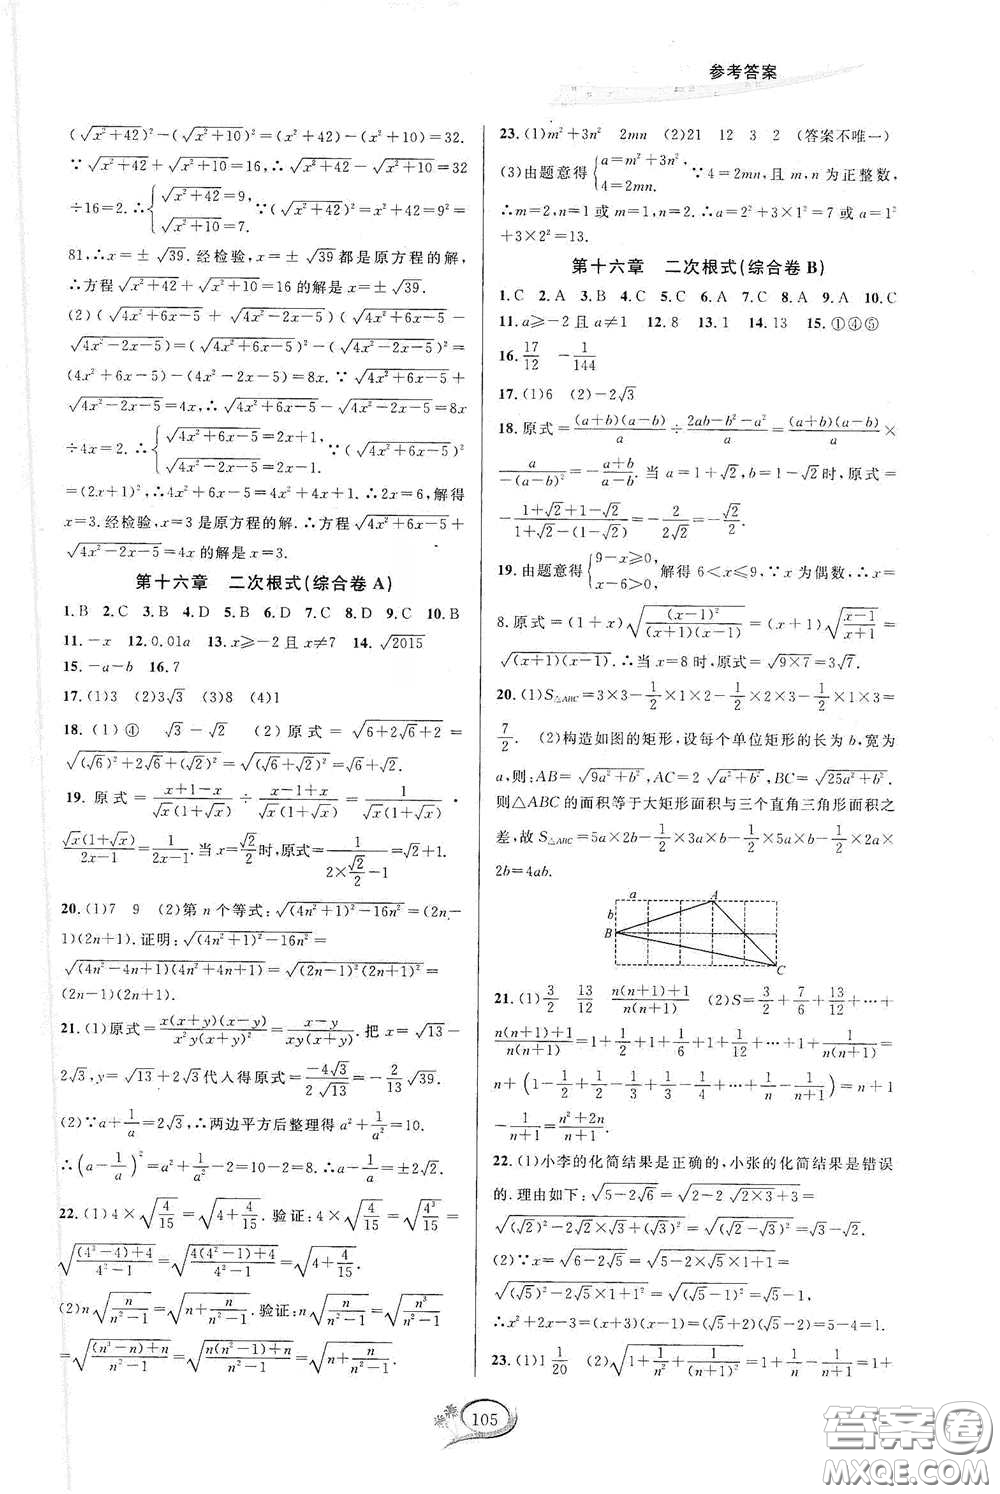 参考答案
(√(x²+42))²-(√(x²+10))²=(x²+42)-(x²+10)=32.
∵√(x²+42)+√(x²+10)=16,∴√(x²+42)-√(x²+10)=32
÷16=2.∴{√(x²+42)=9, √(x²+10)=7.∵(√(x²+42))²=x²+42=9²=
81,∴x=±√39.经检验,x=±√39都是原方程的解,
∴方程√(x²+42)+√(x²+10)=16的解是x=±√39.
(2)(√(4x²+6x-5)+√(4x²-2x-5))(√(4x²+6x-5)-
√(4x²-2x-5))=(√(4x²+6x-5))²-(√(4x²-2x-5))²=
(4x²+6x-5)-(4x²-2x-5)=8x.∵√(4x²+6x-5)+
√(4x²-2x-5)=4x,∴√(4x²+6x-5)-√(4x²-2x-5)=8x
÷4x=2.∴{√(4x²+6x-5)=2x+1, √(4x²-2x-5)=2x-1.∵(√(4x²+6x-5))²
=(2x+1)²,∴4x²+6x-5=4x²+4x+1.∴2x=6,解得
x=3.经检验,x=3是原方程的解.∴方程√(4x²+6x-5)+
√(4x²-2x-5)=4x的解是x=3.
第十六章 二次根式(综合卷A)
1.B 2.C 3.B 4.D 5.B 6.D 7.C 8.D 9.C 10.B
11.-x 12.0.01a 13.x≥-2且x≠7 14.√2015
15.-a-b 16.7
17.(1)3 (2)3√3 (3)8 (4)1
18.(1)④ √3-√2 (2)原式=√(6+2√6+2)=
√((√6)²+2√6+(√2)²)=√((√6+√2)²)=√6+√2.
19.原式=(x+1-x)/(√x(1+√x))÷(x-1+x)/(√x(1+√x))=1/(√x(1+√x))·
√x(1+√x)/(2x-1)=1/(2x-1).当x=√2/2时,原式=1/(2×√2/2-1)=√2+1.
20.(1)7 9 (2)第n个等式:√((4n²+1)²-16n²)=(2n-
1)(2n+1).证明:√((4n²+1)²-16n²)=
√((4n²-4n+1)(4n²+4n+1))=√((2n-1)²(2n+1)²)=
(2n-1)(2n+1).
21.(1)原式=x(x+y)(x-y)/(x²y(x+y)²)=(x-y)/(xy(x+y)).把x=√13-
2√3,y=√13+2√3代人得原式=-4√3/(2√13)=-2/13√39.
(2)∵a+1/a=2√3,∴两边平方后整理得a²+1/a²=10.
∴(a-1/a)²=a²+1/a²-2=10-2=8,∴a-1/a=±2√2.
22.(1)4×√(4/15)=√(4 4/15).验证:4×√(4/15)=√(4³/15)=
√(((4³-4)+4)/(4²-1))=√((4(4²-1)+4)/(4²-1))=√(4+4/15).
(2)n√(n/(n²-1))=√(n+n/(n²-1)).验证:n√(n/(n²-1))=√(n³/(n²-1))
=√(((n³-n)+n)/(n²-1))=√((n(n²-1)+n)/(n²-1))=√(n+n/(n²-1)).
23.(1)m²+3n² 2mn (2)21 12 3 2 (答案不唯一)
(3)由题意得{a=m²+3n², 4=2mn.∵4=2mn,且m,n为正整数,
∴m=2,n=1或m=1,n=2.∴a=2²+3×1²=7或a=1²
+3×2²=13.
第十六章 二次根式(综合卷B)
1.C 2.A 3.B 4.C 5.C 6.A 7.C 8.A 9.A 10.C
11.a≥-2且a≠1 12.8 13.1 14.13 15.①④⑤
16.17/12 -1/144
17.(1)6 (2)-2√3
18.原式=(a+b)(a-b)/a÷(2ab-b²-a²)/a=(a+b)(a-b)/a×
a/(-(a-b)²)=-(a+b)/(a-b).当a=1+√2,b=1-√2时,原式=
-(1+√2+1-√2)/(1+√2-(1-√2))=-2/(2√2)=-√2/2.
19.由题意得{9-x≥0, x-6>0.解得6<x≤9.∵x为偶数,∴x=
8.原式=(1+x)√((x-1)²/((x+1)(x-1)))=(1+x)√((x-1)/(x+1))=
√((x+1)(x-1)).∴当x=8时,原式=√(9×7)=3√7.
20.(1)S△ABC=3×3-1/2×3×1-1/2×2×1-1/2×3×2=
7/2. (2)构造如图的矩形,设每个单位矩形的长为b,宽为
a,则:AB=√(9a²+b²),AC=2√(a²+b²),BC=√(25a²+b²).
则△ABC的面积等于大矩形面积与三个直角三角形面积之
差,故S△ABC=5a×2b-1/2×3a×b-1/2×5a×b-1/2×2a×
2b=4ab.
a
A
b
B
C
21.(1)3/2 13/12 (n(n+1)+1)/(n(n+1)) (2)S=3/2+7/6+13/12+…+
(n(n+1)+1)/(n(n+1))=1+1/2+1+1/6+1+1/12+…+1+1/(n(n+1))=
n+(1-1/2+1/2-1/3+1/3-1/4+…+1/n-1/(n+1))=n+1
-1/(n+1)=(n²+2n)/(n+1).
22.(1)小李的化简结果是正确的,小张的化简结果是错误
的.理由如下:√(5-2√6)=√(2-2√(2×3)+3)=
√((√2)²-2√2×√3+(√3)²)=√((√2-√3)²)=√3-√2.
(2)∵x=√(6-2√5)=√(5-2√5+1)=
√((√5)²-2√5+1²)=√((√5-1)²)=√5-1,
∴x²+2x-3=(x+3)(x-1)=(√5+2)(√5-2)=5-4=1.
23.(1)1 1/20 (2)√(1+1/n²+1/(n+1)²)=1+1/n-1/(n+1)=1+
105
答案卷
MXQE.COM